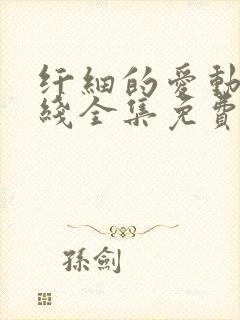 纤細的愛動
綫全集免費
孫劍